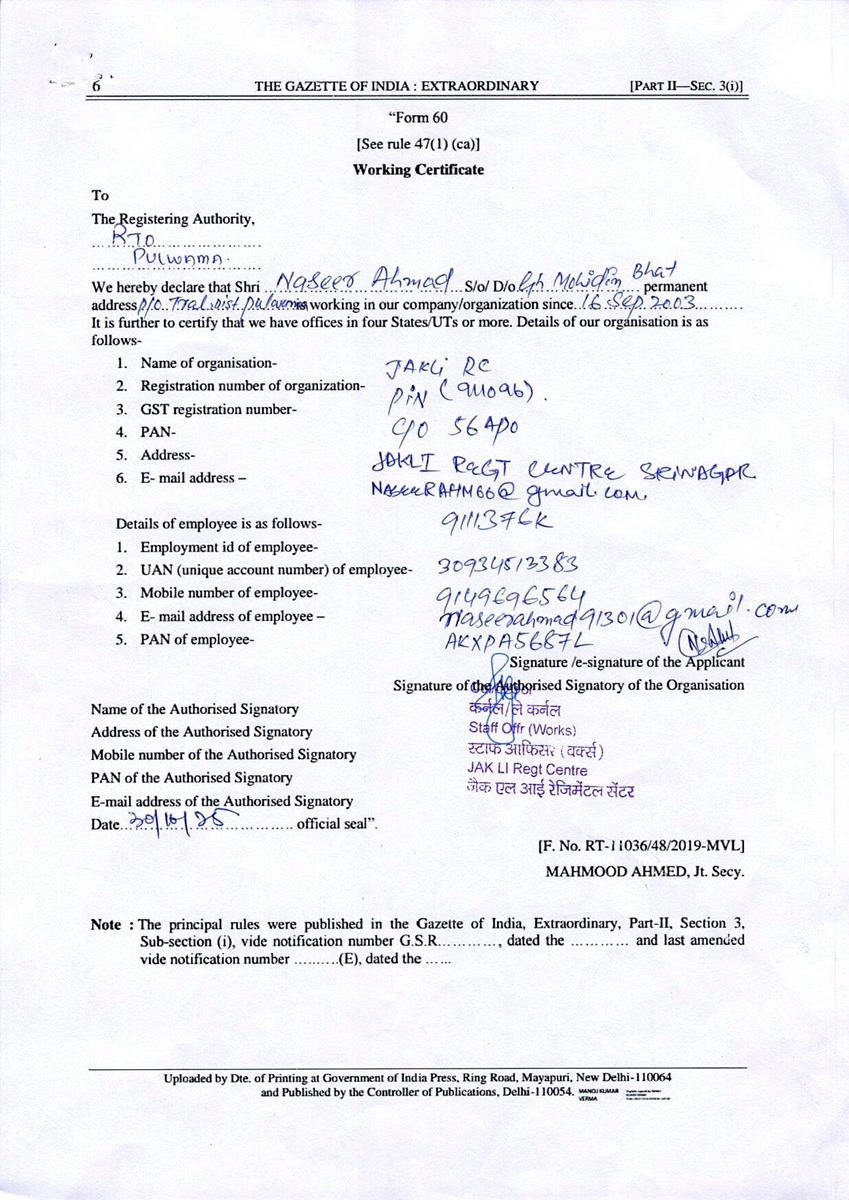 6 THE GAZETTE OF INDIA : EXTRAORDINARY [PART II—SEC. 3(i)]
“Form 60
[See rule 47(1) (ca)]
Working Certificate
To
The Registering Authority,
RTO
PULWAMA.
We hereby declare that Shri Naseer Ahmad S/o/ D/o Gh Mohidin Bhat permanent
address p/o Tral Dist Pulwama working in our company/organization since 16 Sep 2003
It is further to certify that we have offices in four States/UTs or more. Details of our organisation is as
follows-
1. Name of organisation- JAKLI RC
2. Registration number of organization- PIN (911096).
3. GST registration number-
4. PAN- C/O 56 APO
5. Address- JAKLI REGT CENTRE SRINAGAR
6. E- mail address – NASEERAHM66@gmail.com
Details of employee is as follows- 9111376K
1. Employment id of employee-
2. UAN (unique account number) of employee- 30934513383
3. Mobile number of employee- 9149696564
4. E- mail address of employee – naseerahmad91301@gmail.com
5. PAN of employee- AKXPA5687L
Signature /e-signature of the Applicant
Signature of the Authorised Signatory of the Organisation
Name of the Authorised Signatory कर्नल/ले कर्नल
Address of the Authorised Signatory Staff Offr (Works)
Mobile number of the Authorised Signatory स्टाफ आफिसर (वर्क्स)
PAN of the Authorised Signatory JAK LI Regt Centre
E-mail address of the Authorised Signatory जैक एल आई रेजिमेंटल सेंटर
Date...30/10/25.............. official seal”.
[F. No. RT-11036/48/2019-MVL]
MAHMOOD AHMED, Jt. Secy.
Note : The principal rules were published in the Gazette of India, Extraordinary, Part-II, Section 3,
Sub-section (i), vide notification number G.S.R..........., dated the ............ and last amended
vide notification number .........(E), dated the ......
Uploaded by Dte. of Printing at Government of India Press, Ring Road, Mayapuri, New Delhi-110064
and Published by the Controller of Publications, Delhi-110054. MANOJ KUMAR
VERMA